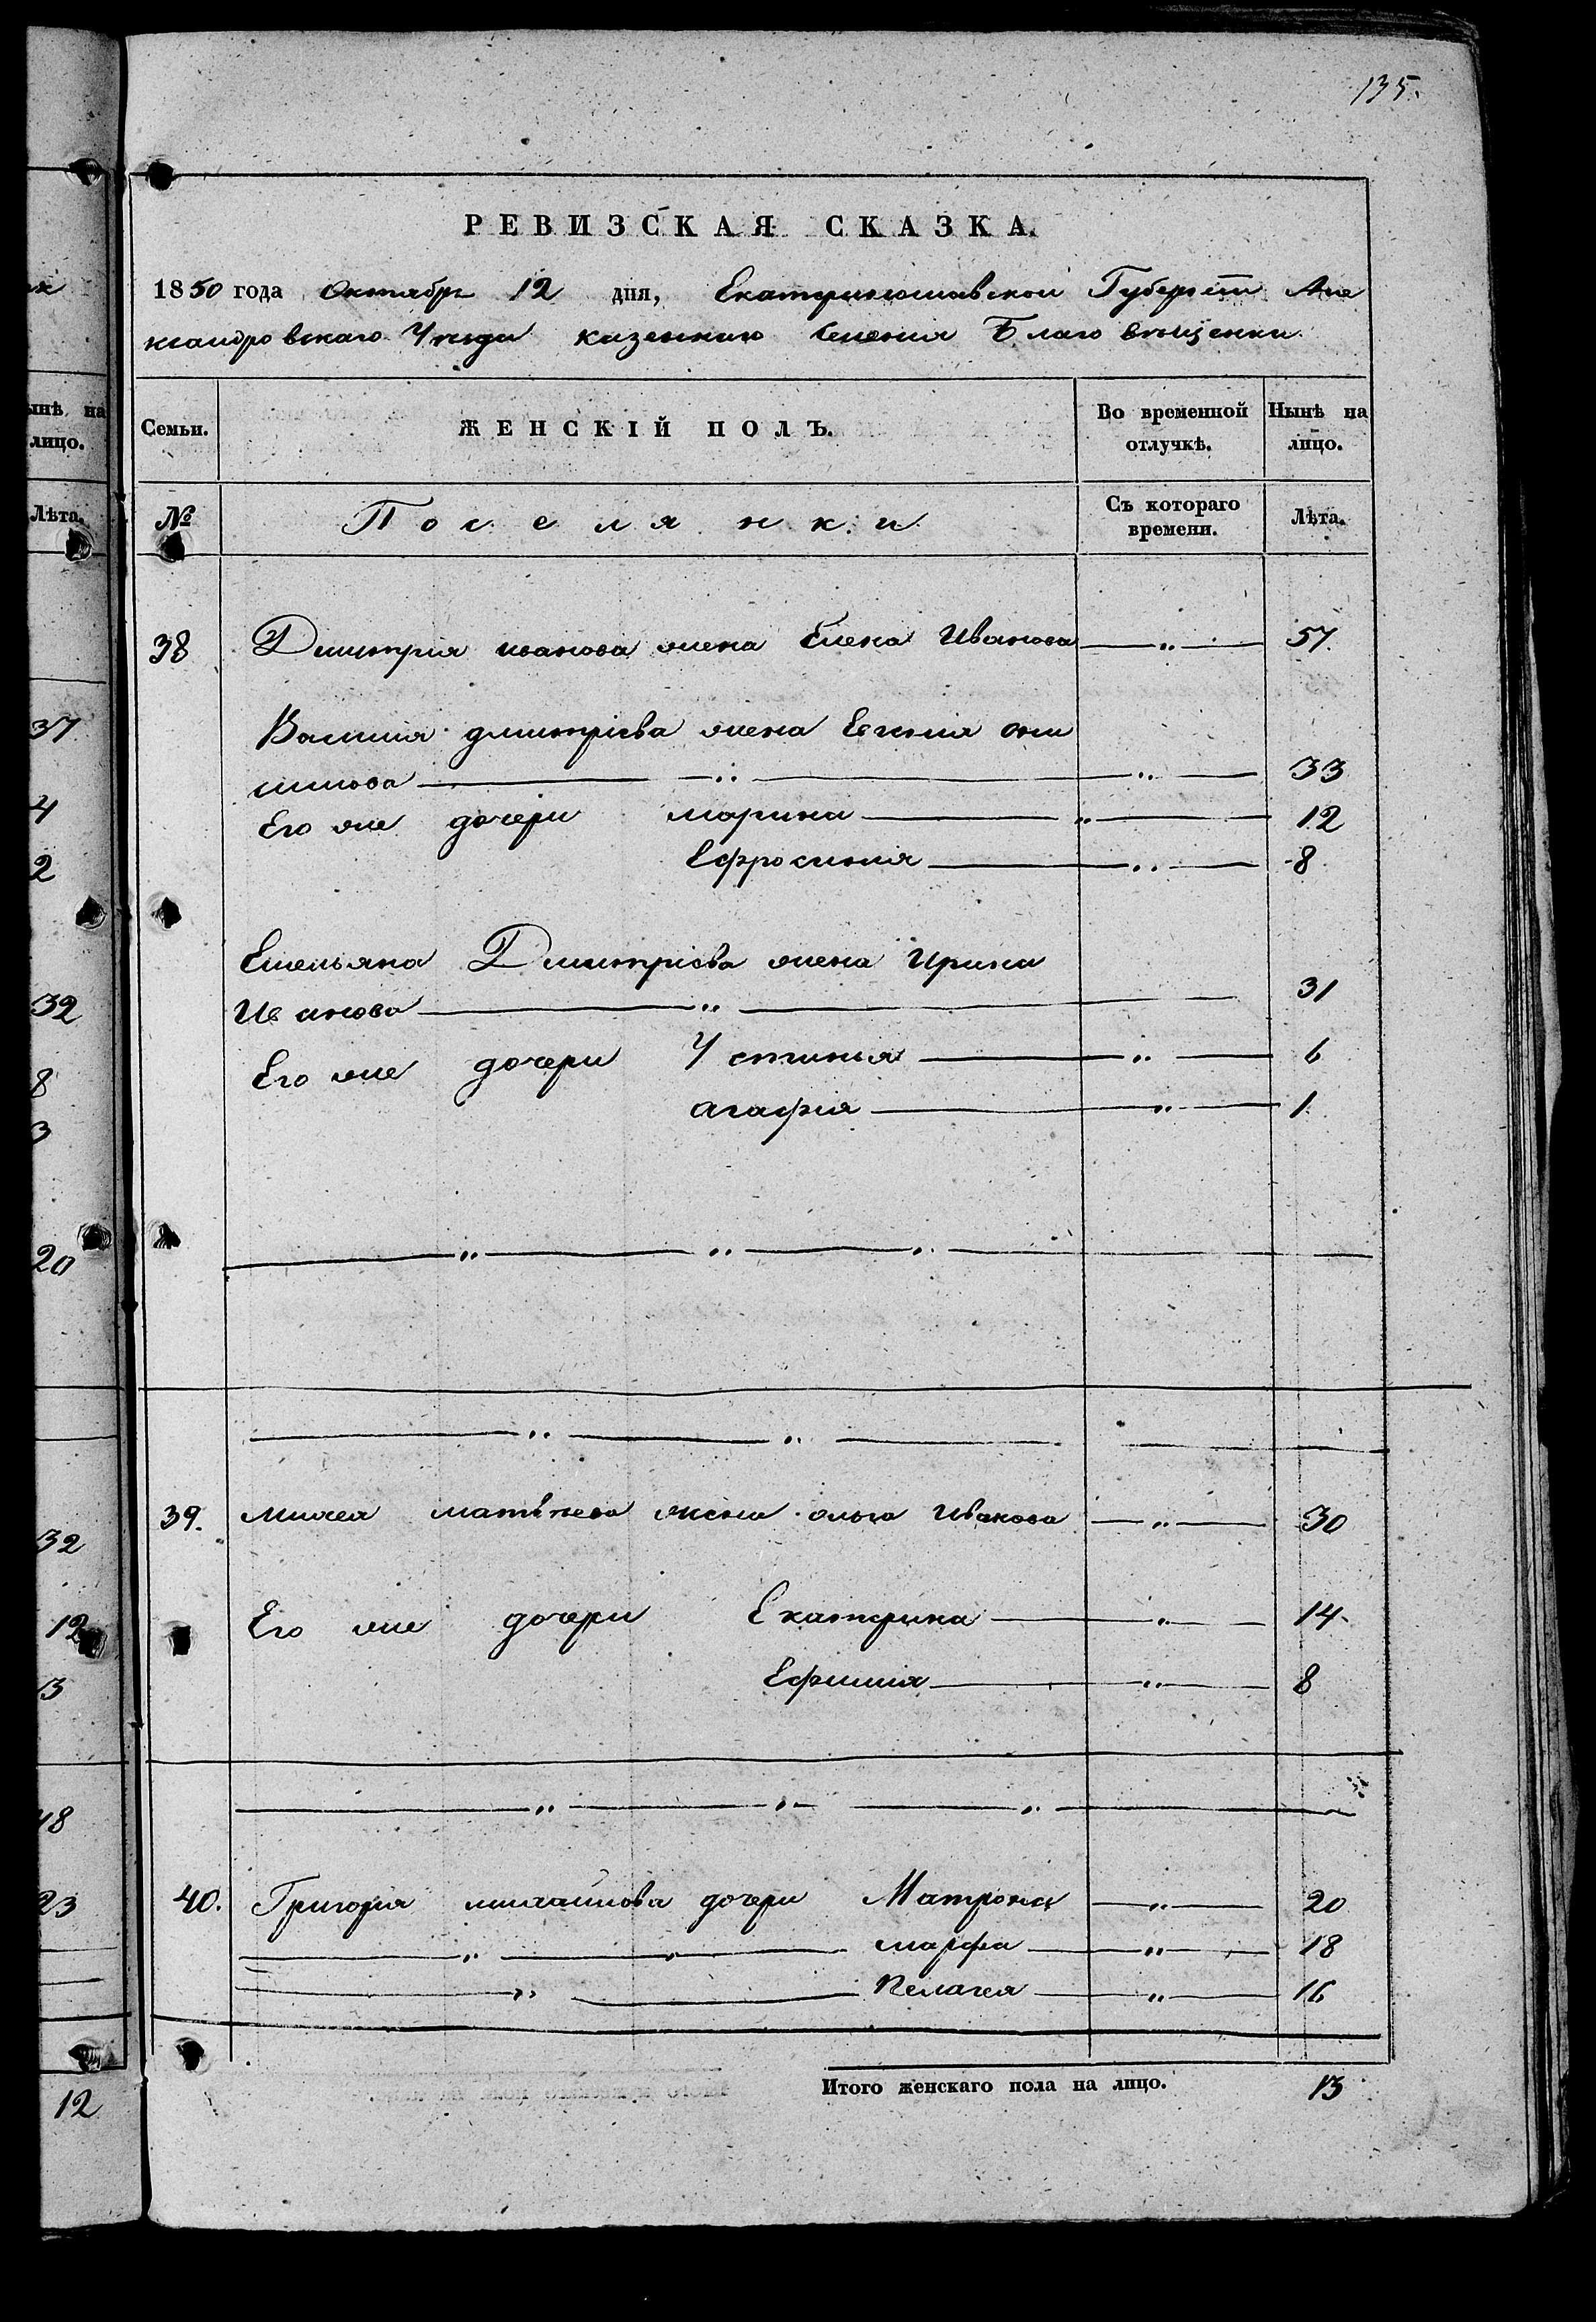 135.
РЕВИЗСКАЯ СКАЗКА.
1850 года Октября 12 дня, Екатеринославской Губерніи Але
ксандровскаго Уѣзда казеннаго селенія Благовѣщенки
Семьи. ЖЕНСКІЙ ПОЛЪ. Во временной отлучкѣ. Нынѣ на лицо.
№ Поселянки Съ котораго времени. Лѣта.
38 Дмитрія иванова жена Елена Иванова — " — 57.
Василия дмитріева жена Евгенія они
симова — " — " — 33
Его же дочери марина — " — 12
Ефросинія — " — 8
Емельяна Дмитріева жена Ирина
Иванова — " — 31
Его же дочери Устинья — " — 6
агафія — " — 1
— " — " — " —
— " — " —
39. матвѣева жена ольга Иванова — " — 30
Его же дочери Екатерина — " — 14
Ефимия — " — 8
— " — " — " —
40. Григорія михайлова дочери Матрона — " — 20
— " — " — марфа — " — 18
— " — Пелагея — " — 16
Итого женскаго пола на лицо. 13
ынѣ на
лицо.
Лѣта.
37
4
2
32
8
3
20
32
12
3
48
23
12